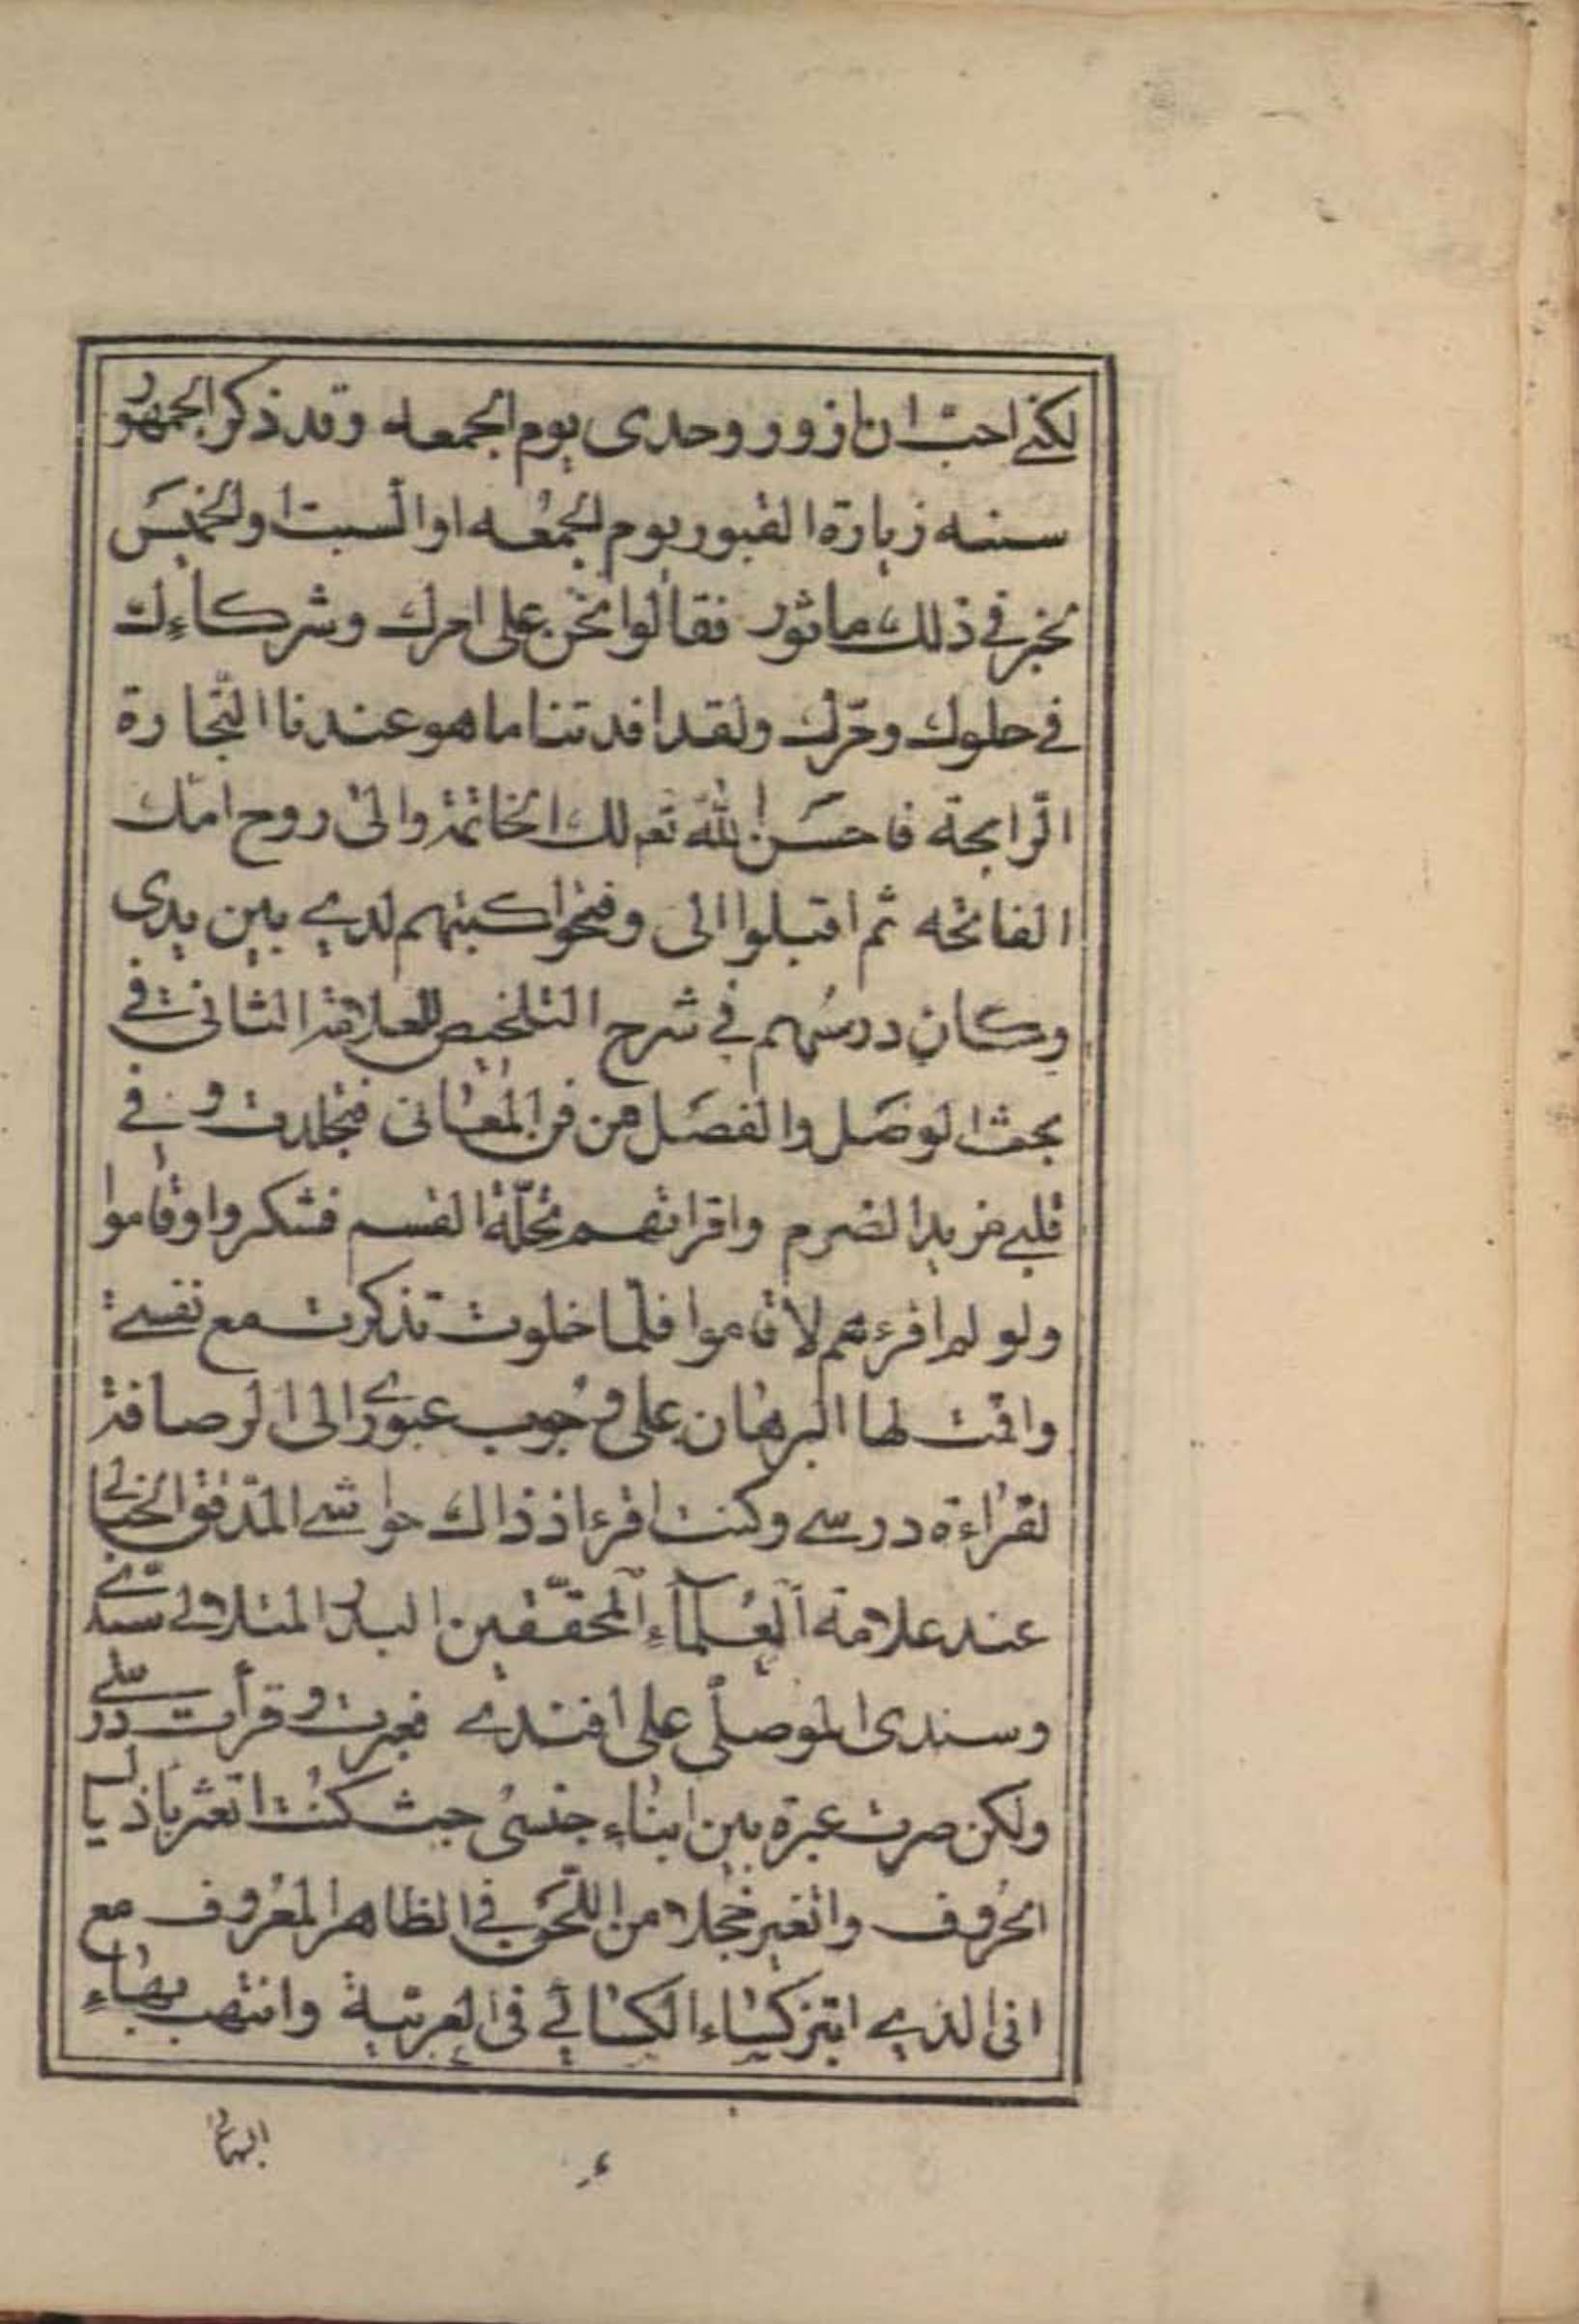 لكنى احبّ ان ازور وحدى يوم الجمعه وقد ذكر الجمهور
سنه زيارة القبور يوم الجمُعه او السبت او الخميسَ
لخبر فى ذلك ماثور فقالوا نحن على امرك وشركاءك
فى حلوك ومرّك ولقد افدتنا ما هو عندنا التّجارة
الرّابحة فاحسَن اللّه تعم لك الخاتمة والى روح امّك
الفاتحه ثم اقبلوا الى وفتحوا كتبهم لدى بين يدى
وكان درسُهم فى شرح التلخيص للعلامة الثانى فى
بحث الوصَل والفصَل من فن المعُانى فتجلدت وفى
قلبى مزيد الضرم واقراتهم تحلّة القسم فشكروا وقاموا
ولو لم اقرءهم لاقاموا فلمّا خلوت تذكرت مع نفسى
واقمت لها البرهان على وجُوب عبورى الى الرصافة
لقراءة درسى وكنت اقرء اذ ذاك حواشى المدقق الخيالى
عند علامة العُلمآءِ المحققّين البدر المتلالى سيدّى
وسندى الموصلّى على افندى فعبرت وقرأت درسى
ولكن صرت عبرة بين ابنُاء جنسىُ حيث كنُت اتعثر باذيال
الحُروف واتغير خجلا من اللّحَن فى الظاهر المعُروف مع
انى الذى ابتز كسُاء الكسُائى فى العربيّة وانتهب بهُاءِ
البهائى